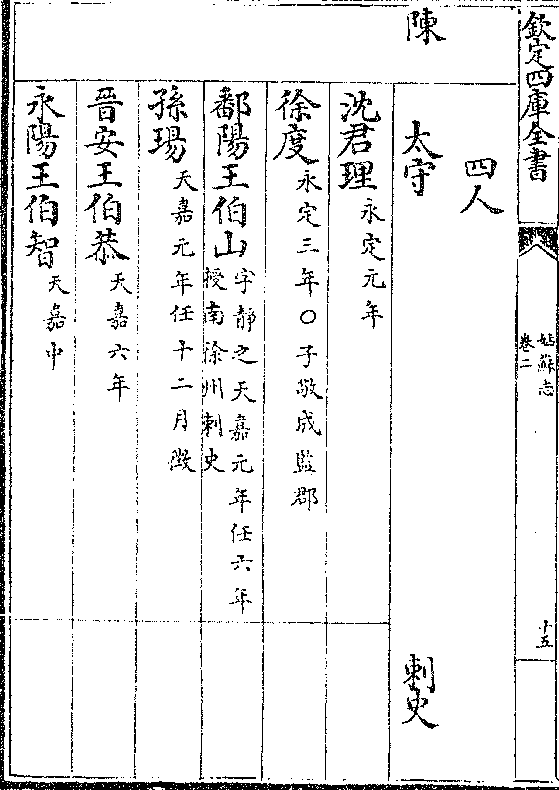 欽定四庫全書
姑蘇志
卷二
十五
四人
陳
太守
刺史
沈君理永定元年
徐度永定三年○子敬成監郡
鄱陽王伯山字靜之天嘉元年任六年
授南徐州刺史
孫瑒天嘉元年任十二月徴
晉安王伯恭天嘉六年
永陽王伯智天嘉中